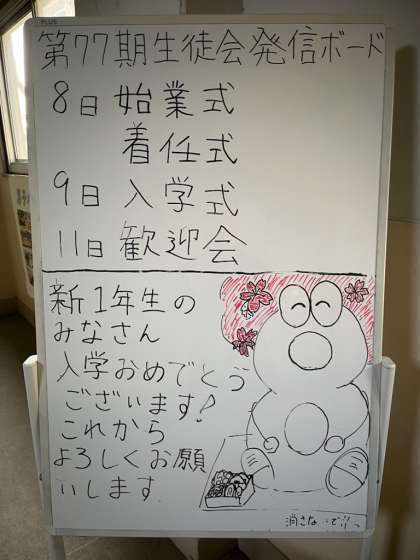 PLUS
第77期生徒会発信ボード
8日 始業式
着任式
9日 入学式
11日 歓迎会
新1年生の
みなさん
入学おめでとう
ございます!
これから
よろしくお願
いします
消さないで!!